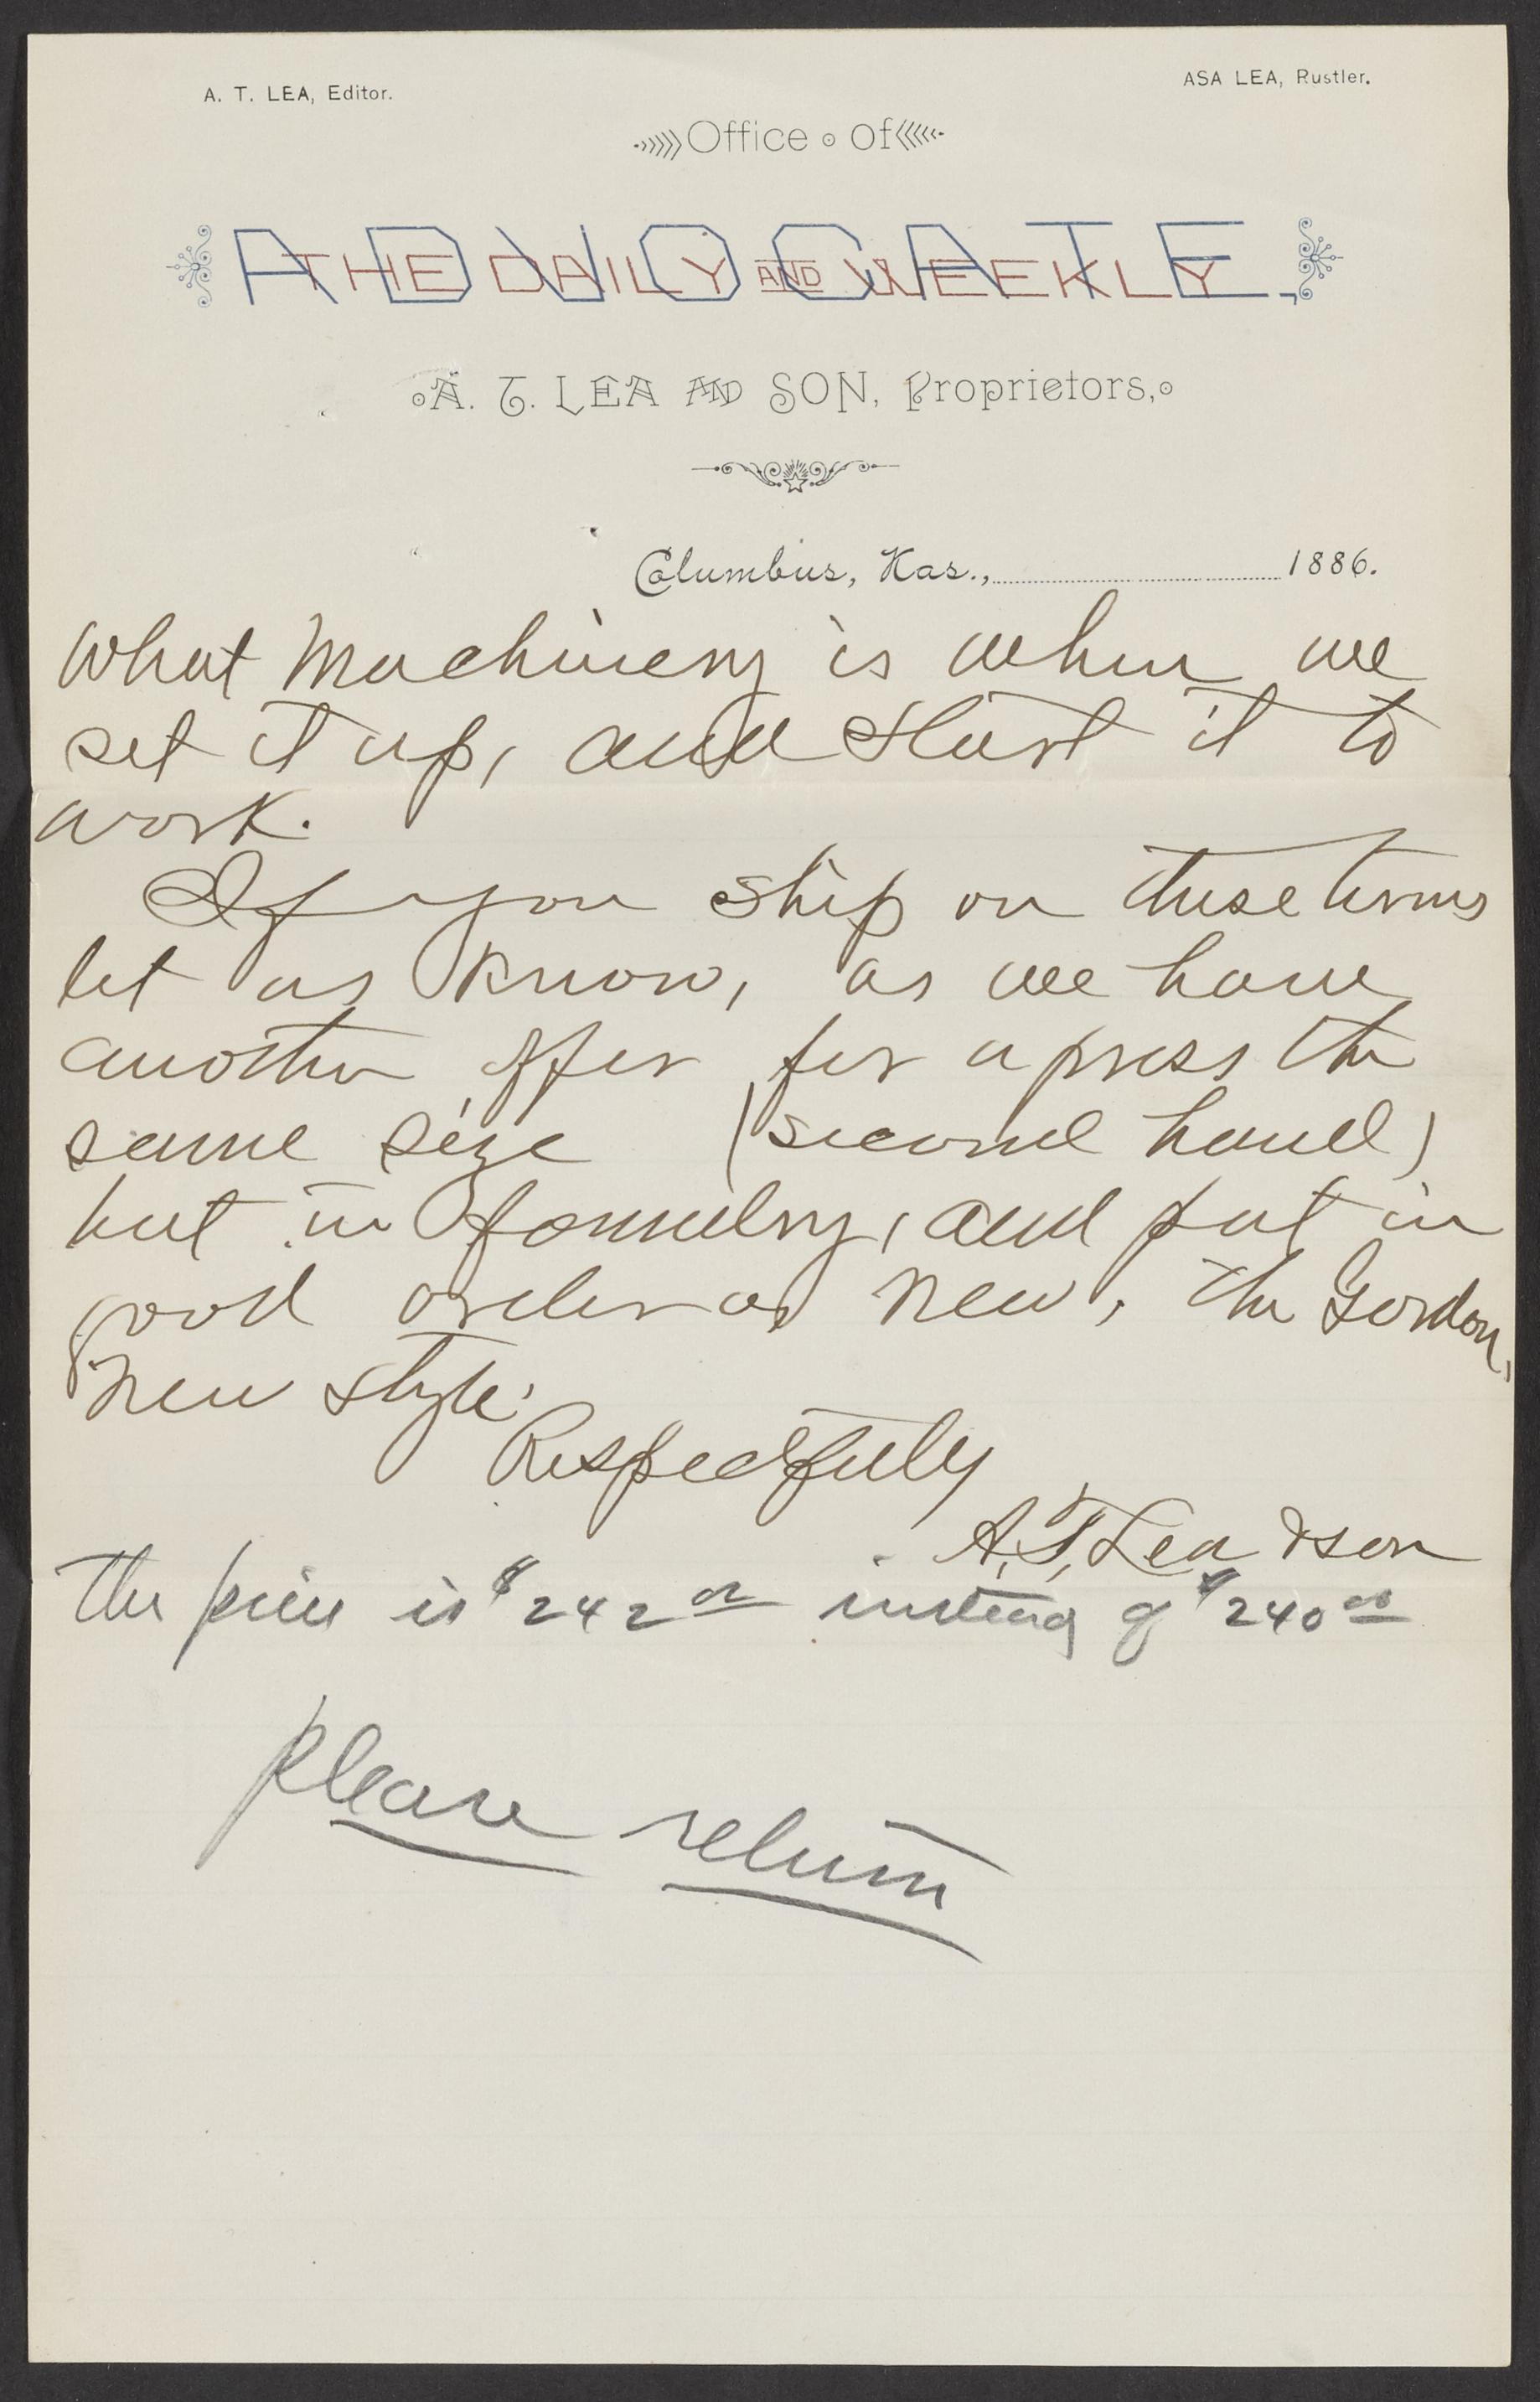 A. T. LEA, Editor.
ASA LEA, Rustler.
Office of
THE DAILY AND WEEKLY
ADVOCATE,
A. T. LEA AND SON, Proprietors,
Columbus, Kas., 1886.
What Machinery is when we
set it up, and Start it to
work.
If you ship on these terms
let us know, as we have
another offer for a press the
same size (second hand)
but in foundry, and put in
good order as new, the Gordon,
new style.
Respectfully
A. T. Lea & son
The price is $242 00 instead of $240 00
Please return